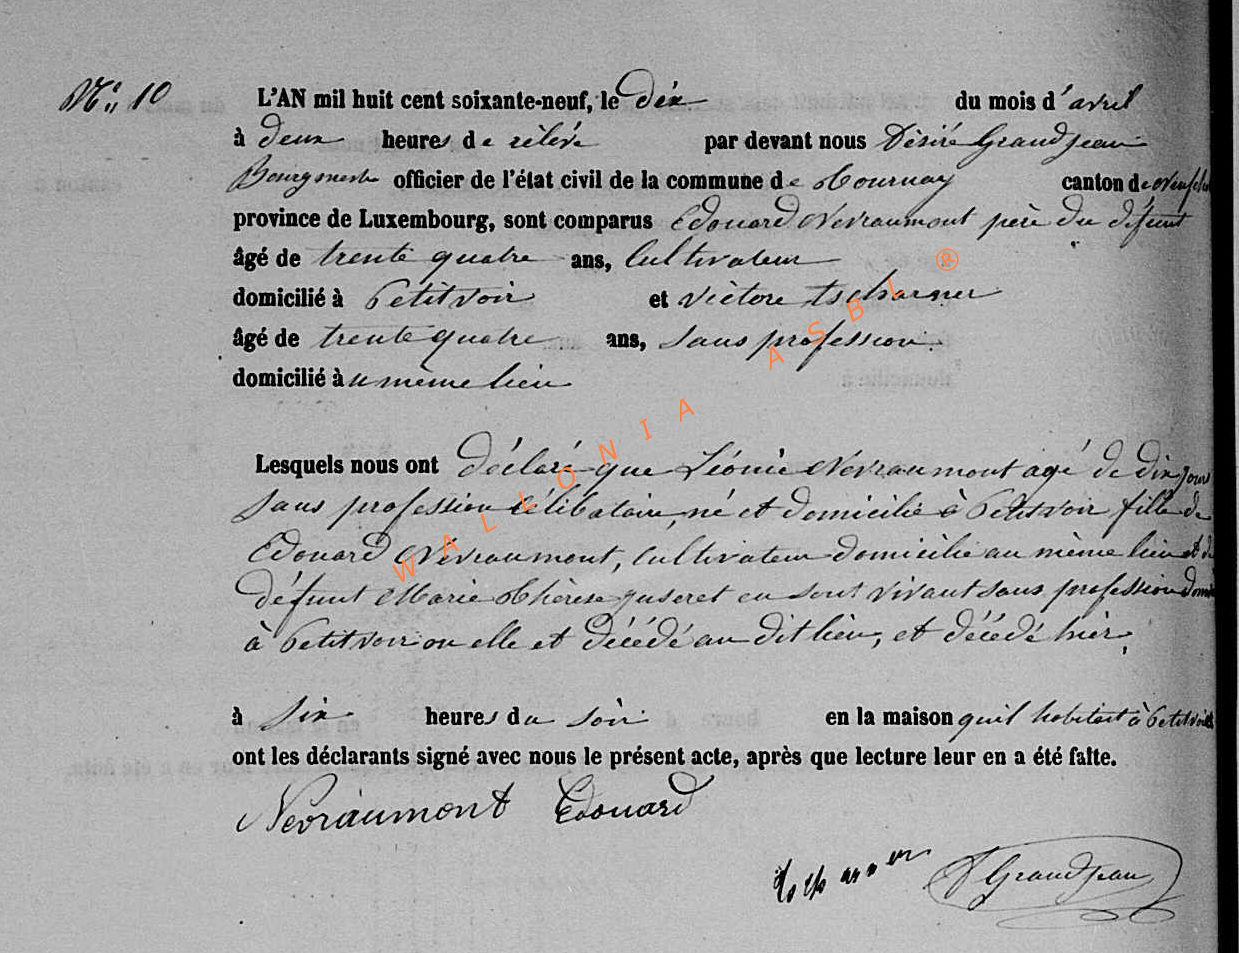 N° 10
L'AN mil huit cent soixante-neuf, le dix du mois d'avril
à deux heures de rélévé par devant nous Désiré Grandjean
Bourgmestre officier de l'état civil de la commune de Tournay canton de Neufch
province de Luxembourg, sont comparus Edouard Nevraumont père du défunt
âgé de trente quatre ans, Cultivateur
domicilié à Petitvoir et victore tscharner
âgé de trente quatre ans, sans profession
domicilié àu même lieu
Lesquels nous ont déclaré que Léonie Nevraumont agé de dix jours
sans profession Célibataire, né et domicilié à Petitvoir fille de
Edouard Névraumont, Cultivateur domicilié au même lieu et de
défunt Marie Thérèse en sont vivant sans profession domi
à Petitvoir ou elle et décédé au dit lieu, et décédé hièr,
à six heures du soir en la maison quil habitait à Petitvoir
ont les déclarants signé avec nous le présent acte, après que lecture leur en a été faite.
Nevraumont Edouard
Tscharner D Grandjean
WALLONIA ASBL ®